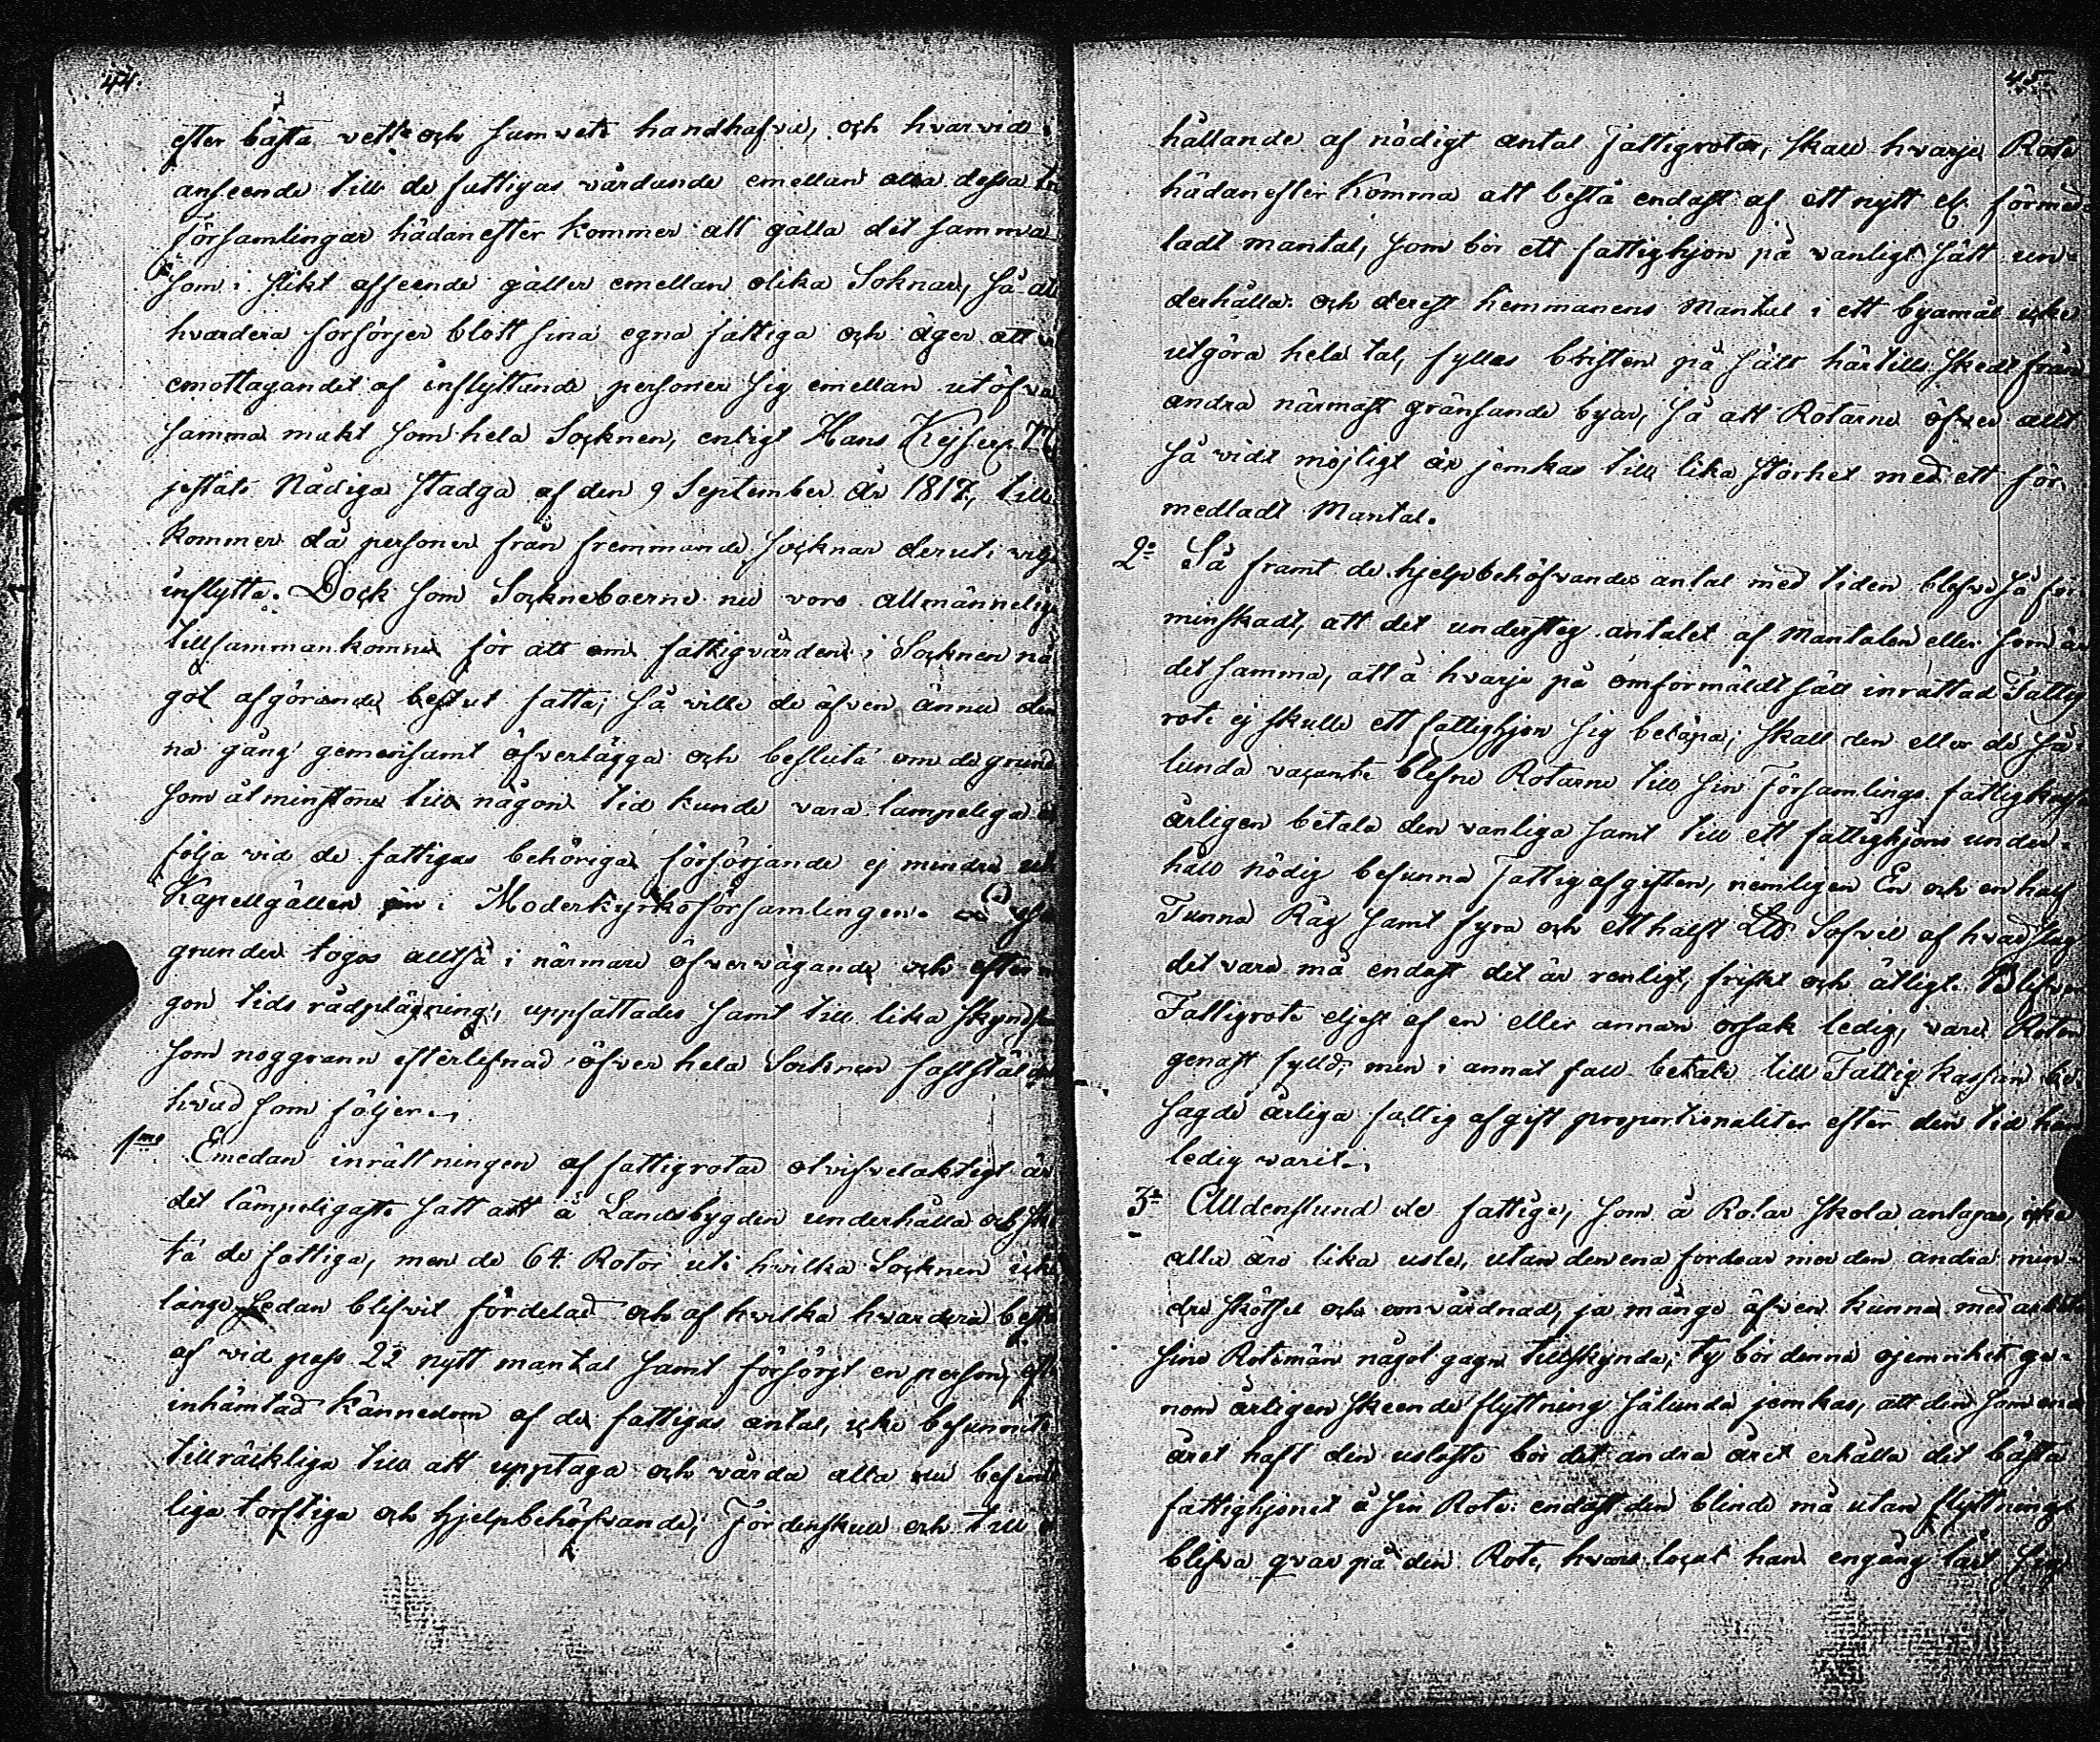 44.
efter bästa vett och samvete handhafva, och hvarvid
anseende till de fattigas vårdande emellan alla dessa
Församlingar hädanefter kommer att gälla det samma
som i slikt afseende gäller emellan olika Soknar, så at
hvardera försörjer blott sina egna fattiga och äger att
emottagandet af inflyttande personer sig emellan utöfva
samma makt som hela Socknen, enligt Hans Kejserl. M
jestäts Nådiga stadga af den 9 September år 1817, till
kommer då personer från fremmande socknar deruti
inflytta. Dock som Sockneboerne nu voro allmänneligen
tillsammankomne för att om fattigvården i Socknen nå
got afgörande beslut fatta; så ville de äfven ännu den
na gång gemensamt öfverlägga och besluta om de grund
som åtminstone till någon tid kunde vara lämpeliga
följa vid de fattigas behöriga försörjande ej mindre uti
Kapellgällen än i Moderkyrkoförsamlingen.
grunder togos alltså i närmare öfvervägande och efter
gon tids rådplägning, uppfattades samt till lika
som noggrann efterlefnad öfver hela Socknen fastställdes
hvad som följer.
1mo Emedan inrättningen af fattigrotar otvifvelaktigt är
det lämpeligaste sätt att å Landsbygden underhålla och skö
ta de fattiga, men de 64 Rotor uti hvilka Socknen
länge sedan blifvit fördelad och af hvilka hvardera bestå
af vid pass 22 nytt mantal samt försörjt en person, efter
inhämtad kännedom af de fattigas antal, icke befunnits
tillräckliga till att upptaga och vårda alla nu befint
liga torftiga och hjelpbehöfvande; Fördenskull och till
45.
hållande af nödigt antal Fattigrotar, skall hvarje Rote
hädanefter komma att bestå endast af ett nytt el. förmed-
ladt mantal, som bör ett fattighjon på vanligt sätt un-
derhålla och derest hemmanens Mantal i ett byamål icke
utgöra hela tal, fyllas bristen på sätt härtills skedt från
andra närmast gränsande byar, så att Rotarne öfver allt
så vidt möjligt är jemkas till lika storhet med ett för-
medladt Mantal.
2o Så framt de hjelpbehöfvandes antal med tiden blefve så för
minskadt, att det understeg antalet af Mantalen eller som är
det samma, att å hvarje på omförmäldt sätt inrättad Fattig
rote ej skulle ett fattighjon sig belöpa; skall den eller de så-
lunda vacante blefne Rotarne till sin Församlings fattigkassa
årligen betala den vanliga samt till ett fattighjons under-
håll nödig befunna Fattigafgiften, nemligen En och en half
Tunna Råg samt fyra och ett halft L℔ Sofvel af hvad slag
det vara må endast det är renligt, friskt och ätligt. Blefve en
Fattigrote eljest af en eller annan orsak ledig, vare Roten
genast fylld, men i annat fall betale till Fattigkassan be-
sagde årliga fattigafgift proportionaliter efter den tid han
ledig varit.
3o Alldenstund de fattige, som å Rotar skola antagas, icke
alla äro lika usle, utan den ena fordrar mer den andra min-
dre skötsel och omvårdnad, ja månge äfven kunna med arbete
sine Rotemän något gagn tillskynda; ty bör denna ojemnhet ge-
nom årligen skeende flyttning sålunda jemkas, att den som ena
året haft den uslaste bör det andra året erhålla det bästa
fattighjonet å sin Rote: endast den blinde må utan flyttning
blifva qvar på den Rote, hvars local han engång lärt sig